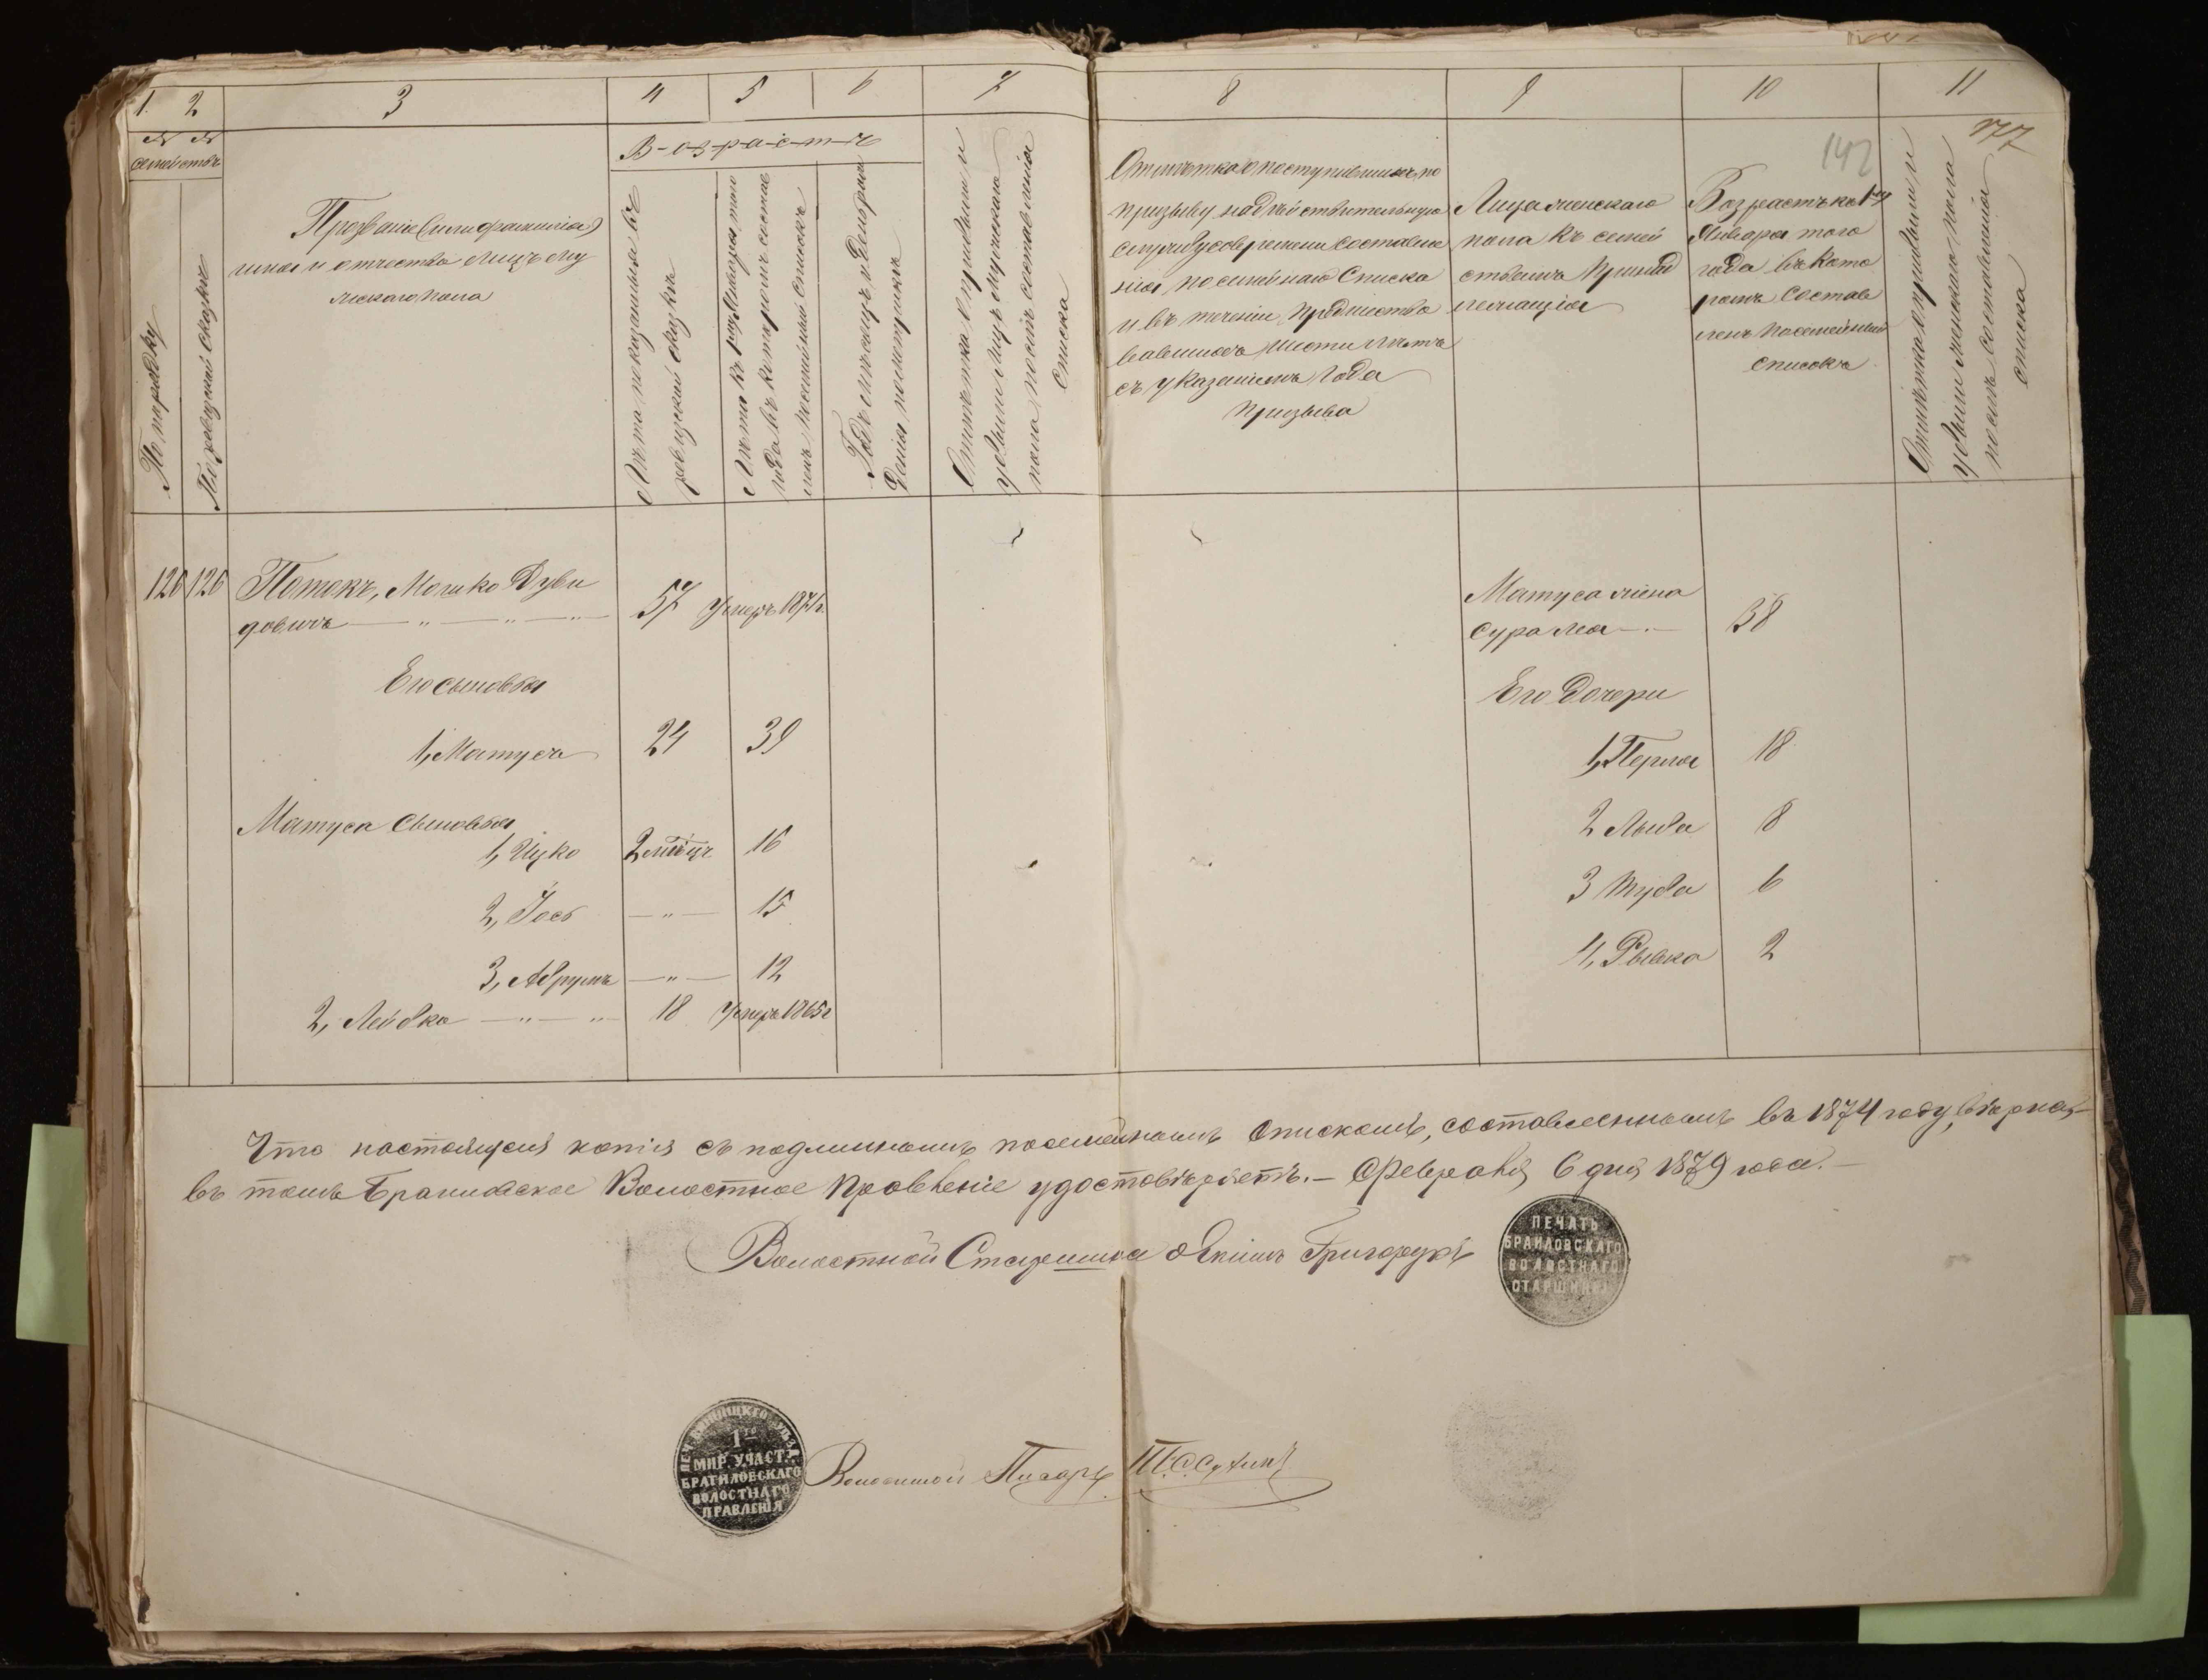 1. 2 3 4 5 6 7
№ № семействъ
По порядку
По ревизской сказкѣ
Прозваніе (или фамилія)
имя и отчество лицъ му
жескаго пола
В-о-з-р-а-с-т-ъ
Лѣта показанныя въ
ревизской сказкѣ
Лѣта къ 1му Января того
года въ которомъ состав
ленъ посемейный списокъ
Годъ мѣсяцъ и день рож
денія
Отмѣтка о прибыли и
убыли лицъ мужескаго
пола послѣ составленія
списка
126 126 Потокъ, Мошко Дуви
довичъ — " — " — " — 57 Умеръ 1871г.
Его сыновья
1, Матусъ 24 39
Матуса сыновья
1, Ицко 2 мѣсц 16
2, Іось — " — 15
3, Абрумъ — " — 12
2, Лейбка — " — " 18 Умеръ 1865г
8 9 10 11
177
142
Отмѣтка о поступившихъ по
призыву на дѣйствительную
службу со времени составле
нія посемейнаго списка
и въ теченіи предшество
вавшихъ шести лѣтъ
съ указаніемъ года
призыва
Лица женскаго
пола къ семей
ствамъ принад
лежащія
Возрастъ къ 1му
Января того
года въ кото
ромъ состав
ленъ посемейный
списокъ
Отмѣтка о прибыли и
убыли женскаго пола
послѣ составленія
списка
Матуса жена
Сура Леа — . — 38
Его дочери
1, Перля 18
2 Лыба 8
3 Туба 6
4, Рывка 2
Что настоящая копія съ подлиннымъ посемейнымъ спискомъ, составленнымъ въ 1874 году, вѣрна,—
въ томъ Браиловское Волостное Правленіе удостовѣряетъ.— Февраля 6 дня 1879 года.—
Волостной Старшина Якимъ Григорукъ
ПЕЧАТЬ
БРАИЛОВСКАГО
ВОЛОСТНАГО
СТАРШИНЫ
ПЕЧ. ВИННИЦКГО УѢЗД.
1го
МИР. УЧАСТ.
БРАИЛОВСКАГО
ВОЛОСТНАГО
ПРАВЛЕНІЯ
Волостной Писарь